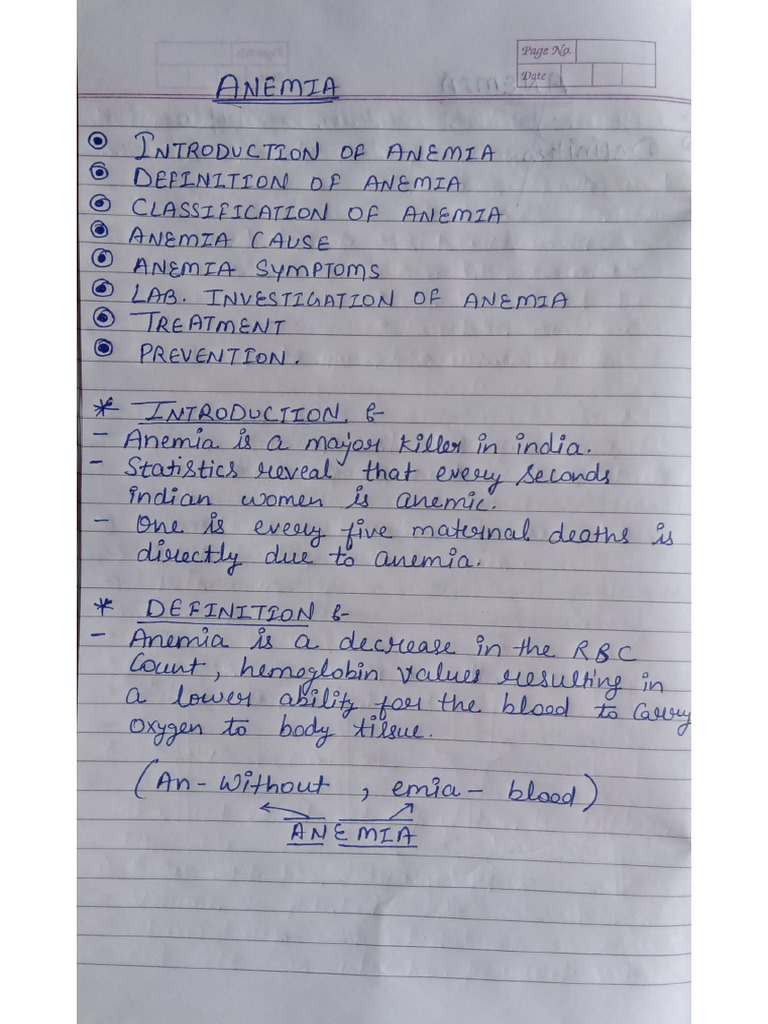 Page No.
Date
ANEMIA
INTRODUCTION OF ANEMIA
DEFINITION OF ANEMIA
CLASSIFICATION OF ANEMIA
ANEMIA CAUSE
ANEMIA SYMPTOMS
LAB. INVESTIGATION OF ANEMIA
TREATMENT
PREVENTION.
* INTRODUCTION :-
- Anemia is a major killer in india.
- Statistics reveal that every seconds
indian women is anemic.
- One is every five maternal deaths is
directly due to anemia.
* DEFINITION :-
- Anemia is a decrease in the RBC
Count, hemoglobin values resulting in
a lower ability for the blood to Carry
oxygen to body tissue.
(An-Without, emia- blood)
ANEMIA